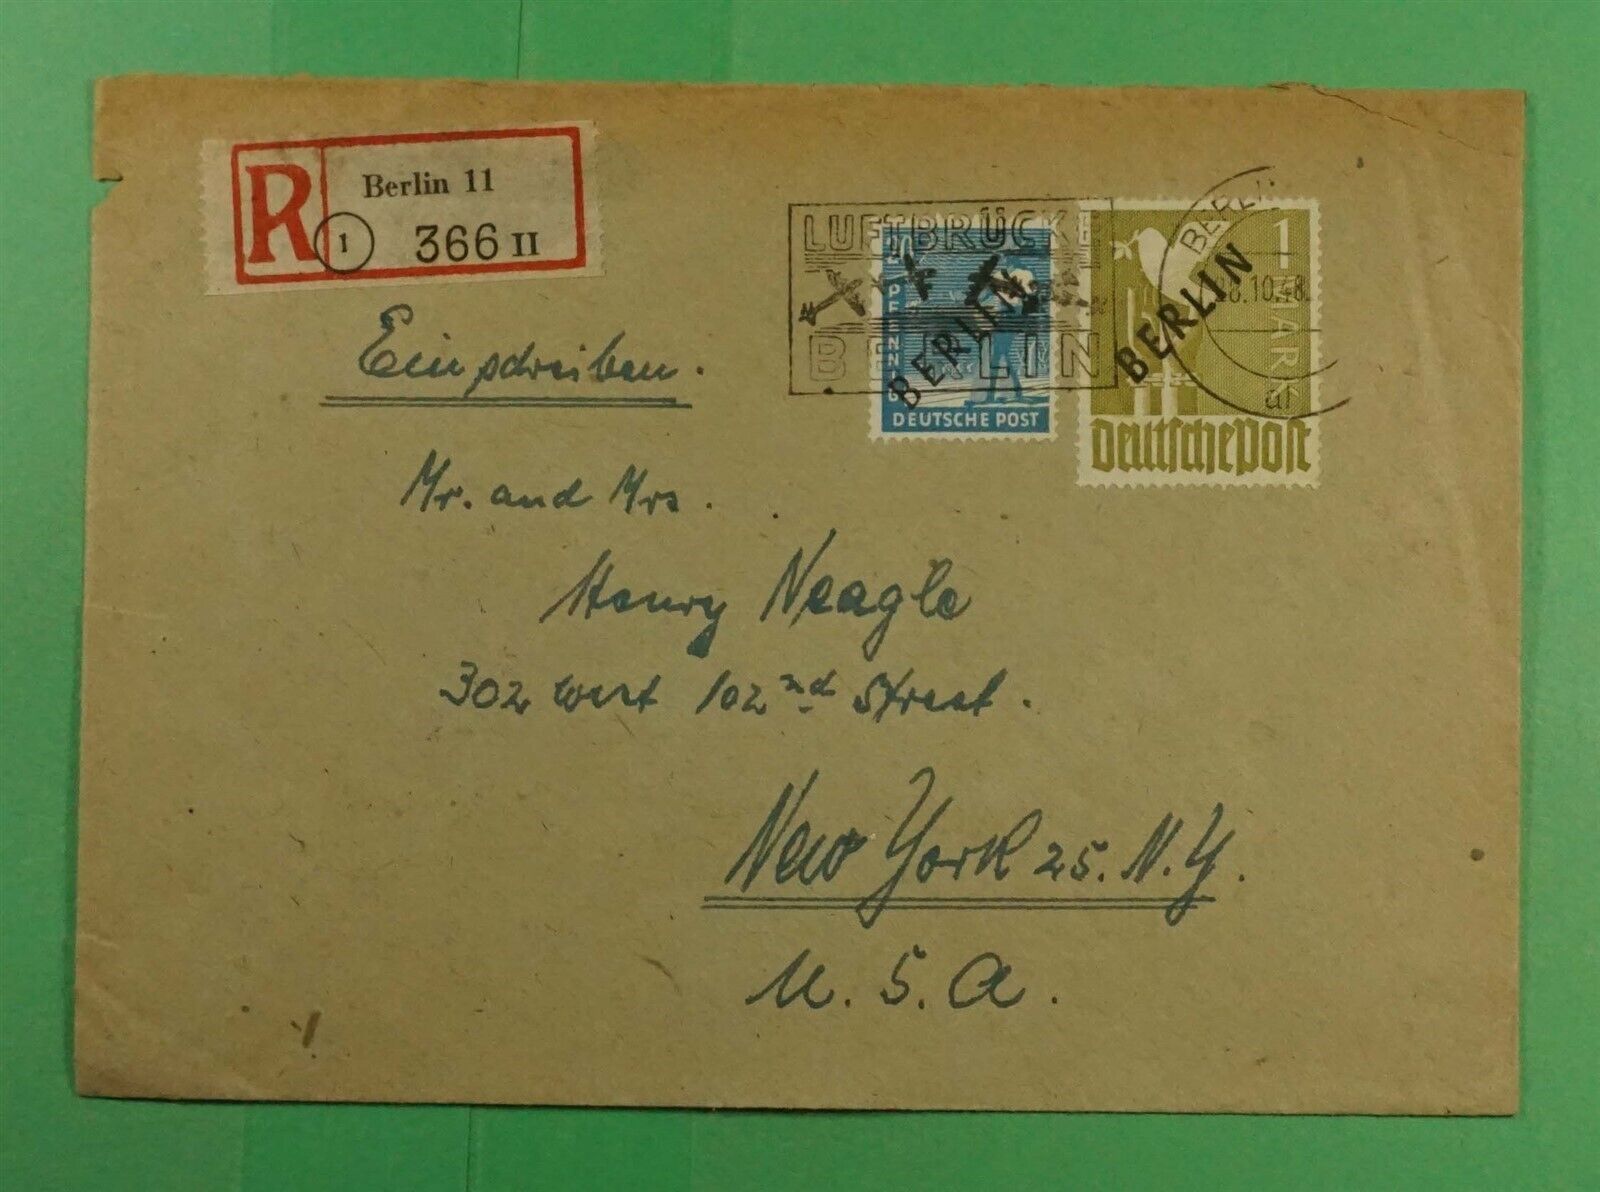 R Berlin 11
1 366 II
LUFTBRÜCKE
BERLIN
PFENNIG
BERLIN
DEUTSCHE POST
BERLIN
10.48.
1 MARK
BERLIN
Deutsche Post
Einschreiben.
Mr. and Mrs.
Henry Neagle
302 west 102nd Street.
New York 25. N.Y.
U. S. A.